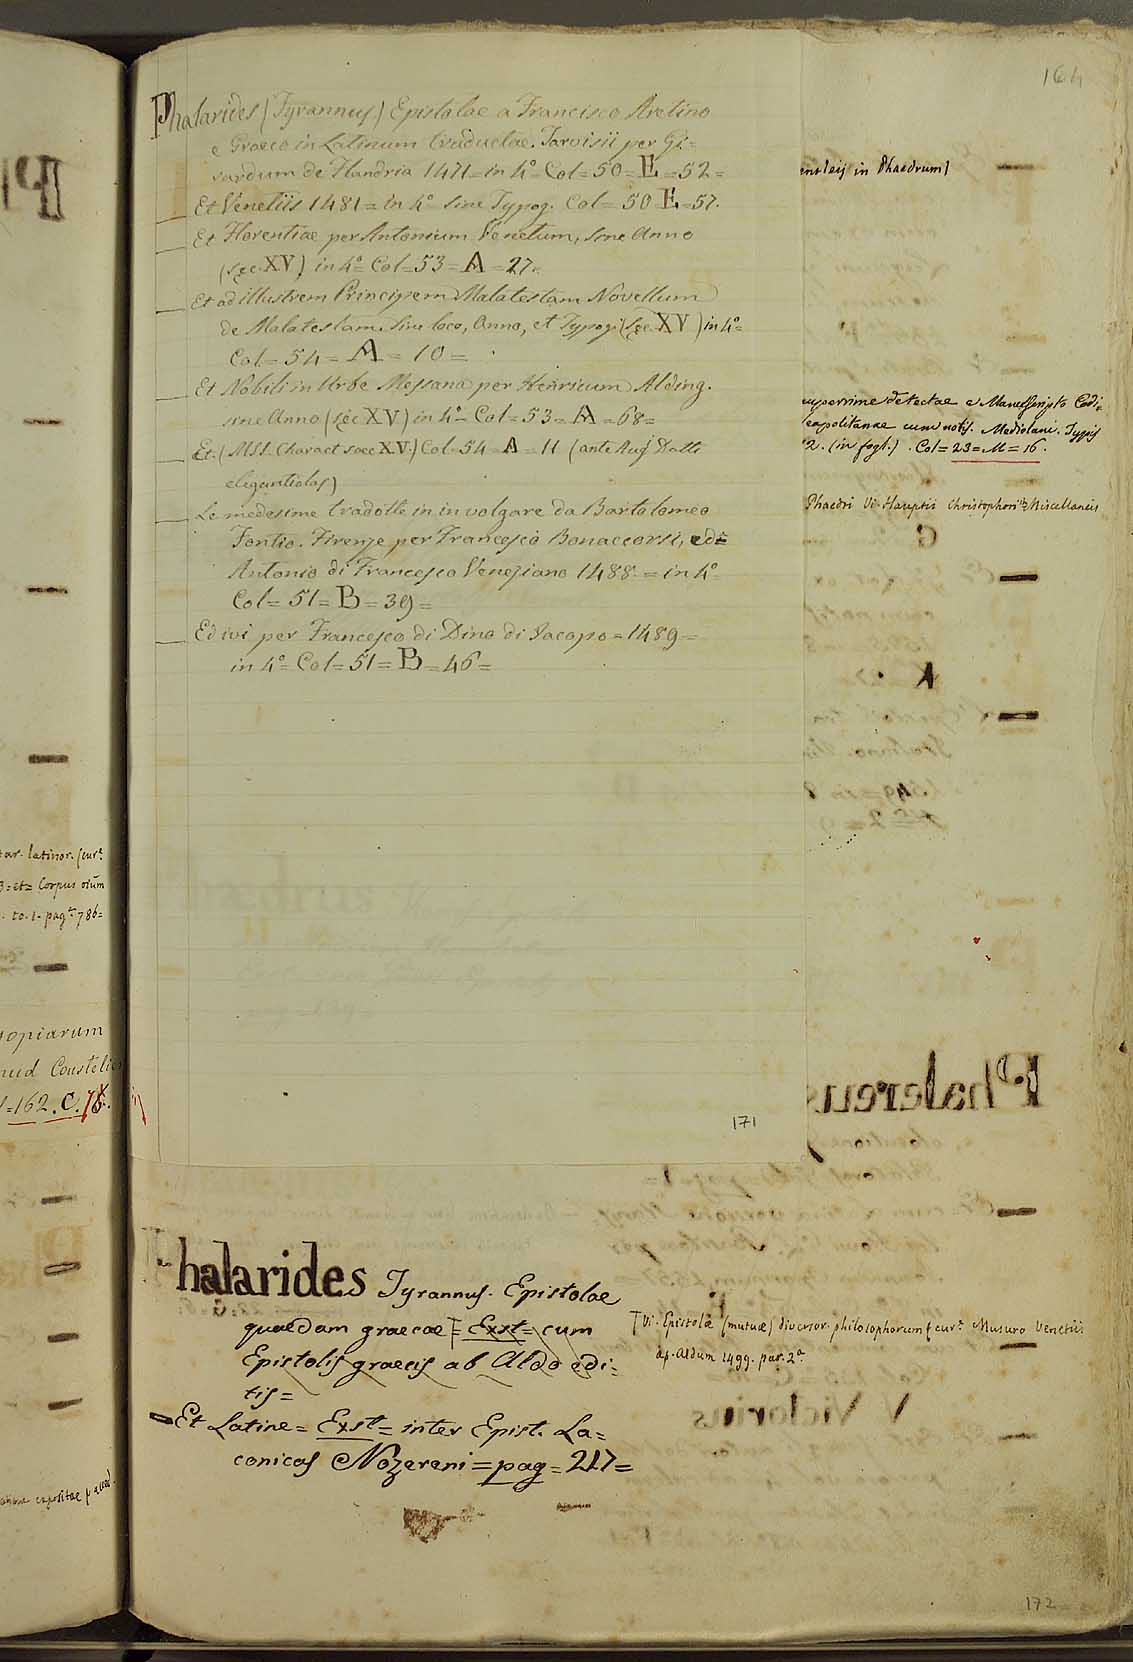 164
Phalarides (Tyrannus.) Epistolae a Francisco Aretino
e Graeco in Latinum traductae. Tarvisii per Gi=
rardum de Flandria 1471 = in 4º = Col = 50 = E = 52 =
Et Venetiis 1481 = in 4º sine Typog. Col = 50 E = 57.
Et Florentiae per Antonium Venetum, sine Anno
(sec. XV) in 4º = Col = 53 = A = 27.
Et ad illustrem Principem Malatestam Novellum
de Malatestam. sine loco, Anno, et Typog. (sec. XV) in 4º =
Col = 54 = A = 10 =
Et Nobili in Urbe Messana per Henricum Alding.
sine Anno (sec XV) in 4º = Col = 53 = A = 68 =
Et. (MSS. Charact saec XV.) Col = 54 = A = 11 (ante Aug Datti
elegantiolas)
Le medesime tradotte in in volgare da Bartolomeo
Fontio. Firenze per Francesco Bonaccorsi, ed =
Antonio di Francesco Veneziano 1488. = in 4º
Col = 51 = B = 39 =
Ed ivi per Francesco di Dino di Jacopo = 1489 =
in 4º = Col = 51 = B = 46 =
171
in Phaedrum)
detectae e Manuscripto Codi=
cum notis. Mediolani. Typis
2. (in fogl.) . Col = 23 = M = 16.
Phaedri Vi. Hauptii Christophori Miscellaneis
Phalarides Tyrannus. Epistolae
quaedam graecae = Exst = cum
Epistolis graecis ab Aldo edi=
tis =
Vi. Epistolae (mutuae) diversor. philosophorum (cur. Musuro Venetiis
ap. Aldum 1499. par. 2ª
Et Latine = Exst = inter Epist. La=
conicas Nozereni = pag = 217 =
172
tar. latinor. (cur.
= et = Corpus
to. 1. pag. 786 =
opiarum
ud Coustelie
= 162. C. 78.
expositae